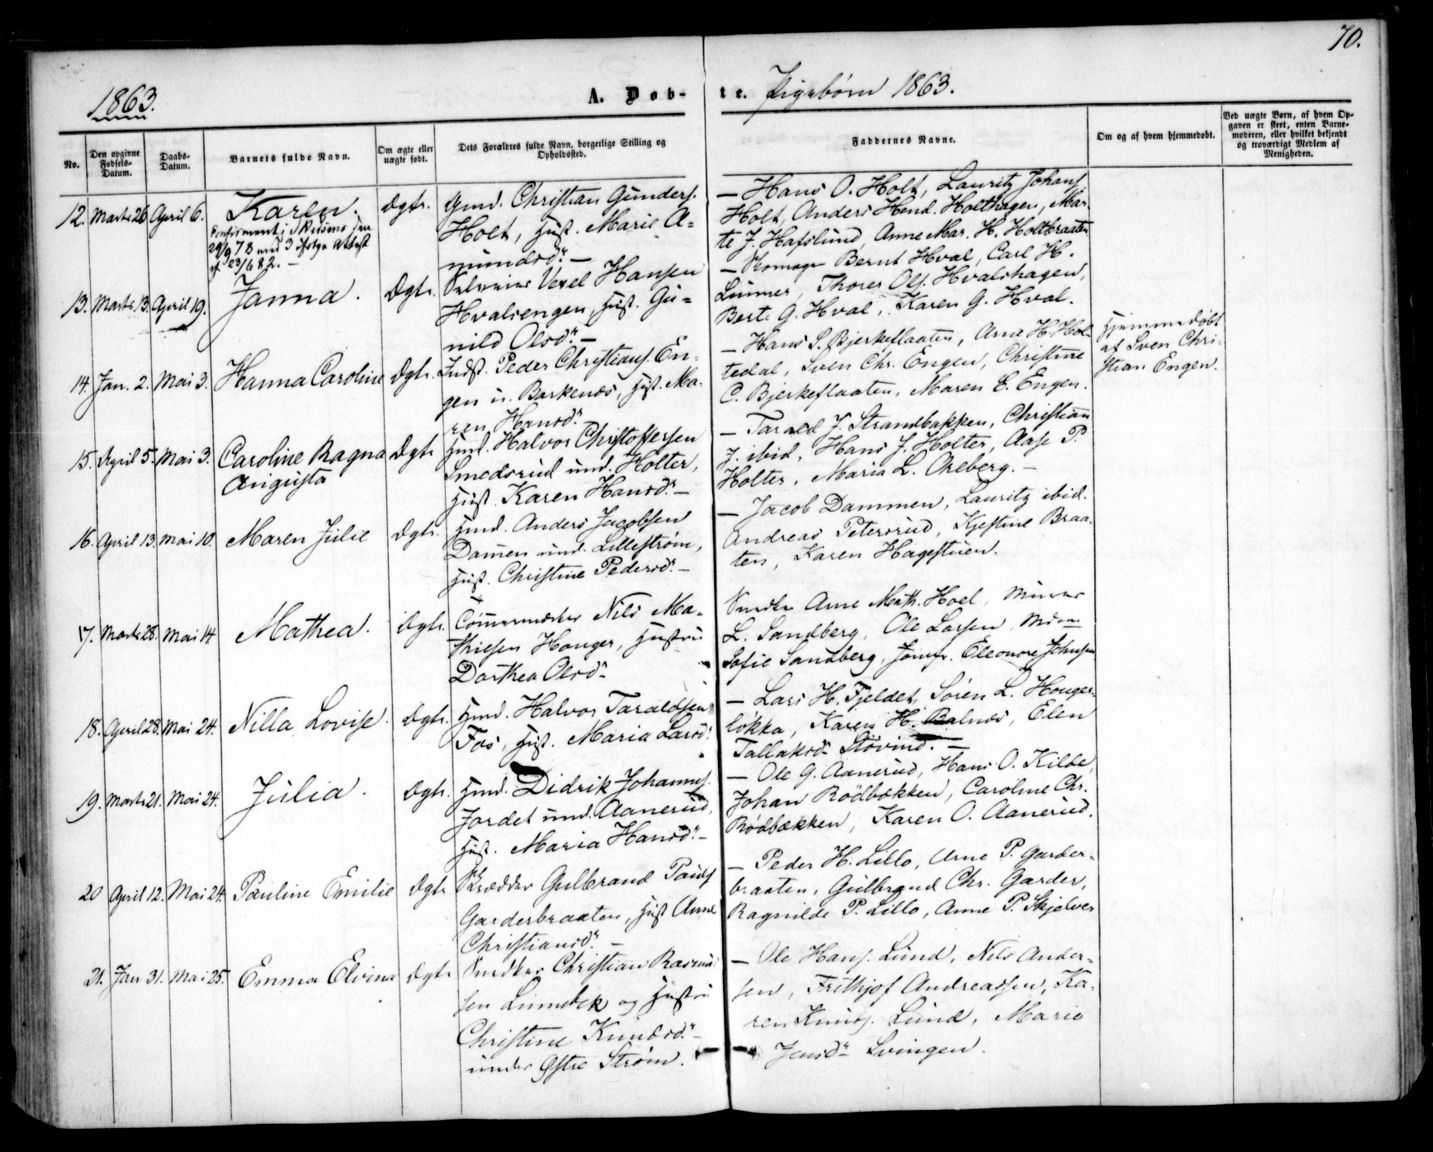 70.
1863.
A. Døb-
te. Pigebørn 1863.
No.
Den opgivne Fødsels-Datum.
Daabs-Datum.
Barnets fulde Navn.
Om ægte eller uægte født.
Dets Forældres fulde Navn, borgerlige Stilling og Opholdssted.
Faddernes Navne.
Om og af hvem hjemmedøbt.
Ved uægte Børn, af hvem Opgaven er skeet, enten Barnemoderen, eller hvilket bekjendt og troværdigt Medlem af Menigheden.
12. Marts 26 April 6. Karen. Ægte.
Confirmeret i
29/9 78 med 3 Attest
af 23/6 82. —
Gmd. Christian Gunders.
Holt, Hust. Marie A-
mundsd. —
— Hans O. Holt, Lauritz Johans.
Holt, Anders Hend. Holthagen, Mar-
te J. Hafslund, Anne Mar. H. Holtbraaten
13. Marts 13. April 19. Janna. Ægte.
Hansen
Hvalsengen, Hust. Gu-
nild Olsd. —
— Bernt Hval, Carl H.
Linner, Thores Ols. Hvalshagen,
Berte G. Hval, Karen G. Hval.
14 Jan. 2. Mai 3. Hanna Caroline Ægte.
Indst. Peder Christians. En-
gen u. Barkenæs, Hust. Ma-
ren Hansd.
— Hans S. Bjerkeflaaten, Arne H. Hol-
tedal, Sven Chr. Engen, Christine
C. Bjerkeflaaten, Maren C. Engen.
Hjemmedøbt
af Sven Chri-
stian Engen.
15. April 5. Mai 3. Caroline Ragna
Augusta
Ægte
Hmd. Halvor Christoffersen
Smedsrud und. Holter,
Hust. Karen Hansd. —
— Tarald J. Strandbakken, Christian
J. ibid, Hans J. Holter, Aase P.
Holter, Maria L. Oreberg. —
16. April 13. Mai 10. Maren Julie Ægte.
Hmd. Anders Jacobsen
Damen und. Lillestrøm,
Hust. Christine Pedersd. —
— Jacob Dammen, Lauritz ibid.
Andreas Petersrud, Kjestine Braa-
ten, Karen Hagestuen.
17. Marts 28. Mai 14 Mathea. Ægte.
Tømmermester Nils Ma-
thiesen Hauger, Hustru
Dorthea Olsd.
Smeden Arne Math. Hoel, Murer
L. Sandberg, Ole Larsen,
Sofie Sandberg, Jomfr. Eleonore Johnsen
18. April 28. Mai 24. Nilla Lovise. Ægte.
Hmd. Halvor Taraldsen
Fos, Hust. Maria Larsd.
— Lars H. Fjeldet, Søren L. Hauger-
løkka, Karen H. Balnæs, Elen
Tallaksd. Støvind. —
19. Marts 21. Mai 24. Julia. Ægte.
Hmd. Didrik Johannes.
Jordet und. Aanerud,
Hust. Maria Hansd. —
— Ole G. Aanerud, Hans O. Kilde,
Johan Rødbækken, Caroline Chr.
Rødbækken, Karen O. Aanerud.
20 April 12. Mai 24. Pauline Emilie Ægte
Skrædder Gulbrand Pauls.
Garderbraaten, Hust Anne
Christiansd. —
— Peder H. Lillo, Arne P. Garder-
braaten, Gulbrand Chr. Garder,
Ragnilde P. Lillo, Anne P. Skjelver
21. Jan 31. Mai 25. Emma Elvina Ægte
Snedker Christian Rasmus-
sen Linnebek og Hustru
Christine Knudsd. —
under Østre Strøm.
— Ole Hans. Lund, Nils Ander-
sen, Frithjof Andreassen, Ka-
ren Knuds. Lund, Marie
Jensd. Svingen.